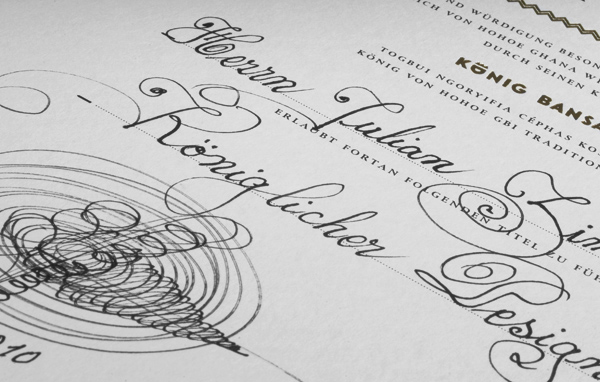 UND WÜRDIGUNG BESON
ICH VON HOHOE GHANA
DURCH SEINEN
KÖNIG BANSA
TOGBUI NGORYIFIA CÉPHAS
KÖNIG VON HOHOE GBI TRADITION
Herrn Julian Zim
ERLAUBT FORTAN FOLGENDEN TITEL ZU FÜH
- Königlicher Design
010